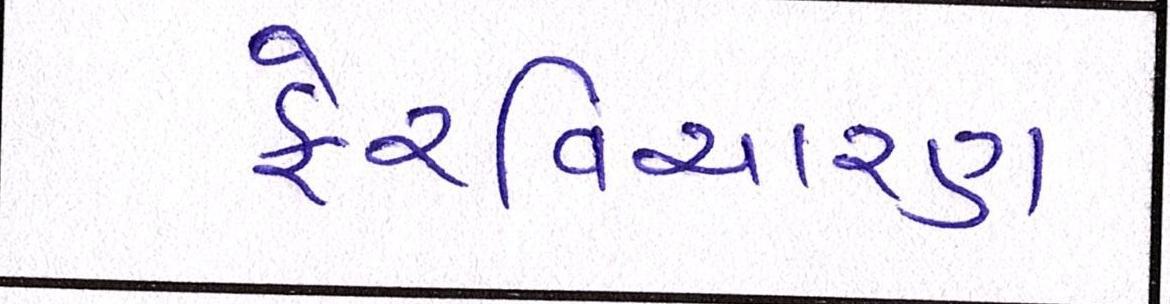 ફેરવિચારણ